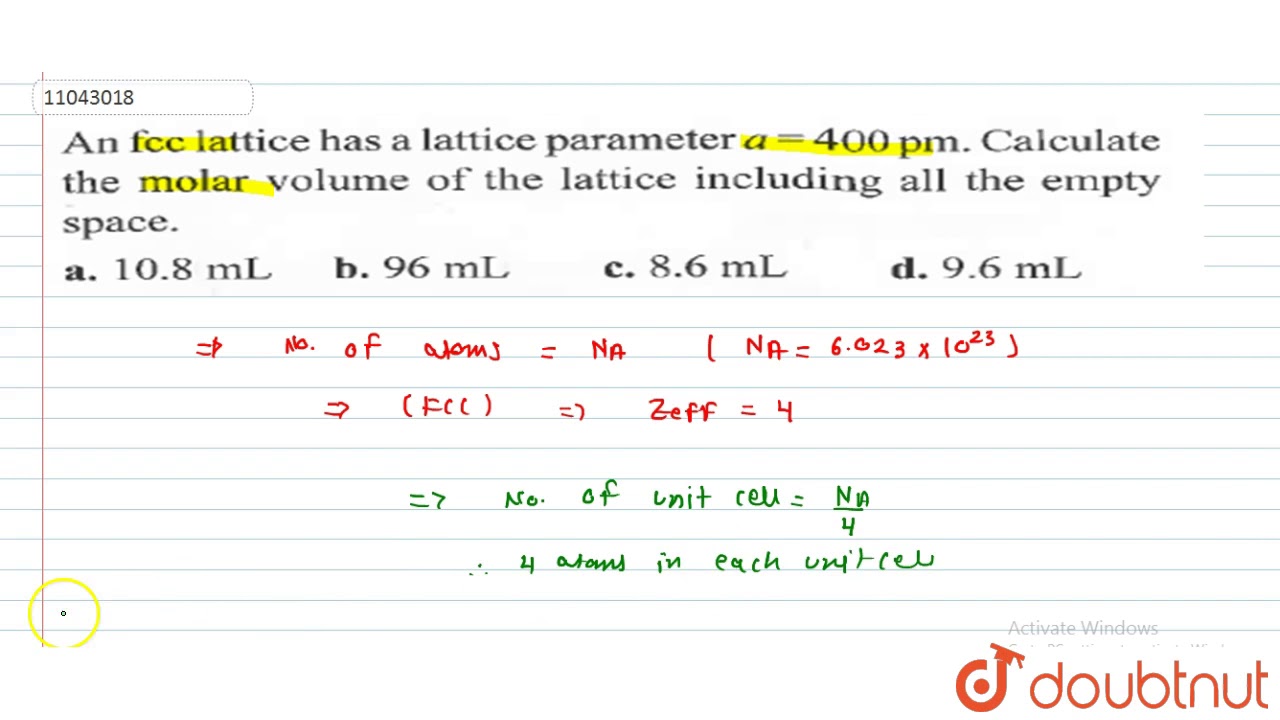 11043018
An fcc lattice has a lattice parameter a = 400 pm. Calculate
the molar volume of the lattice including all the empty
space.
a. 10.8 mL b. 96 mL c. 8.6 mL d. 9.6 mL
⇒ No. of atoms = NA ( NA = 6.023 × 10²³ )
⇒ (FCC) => Zeff = 4
=> No. of unit cell = NA/4
∴ 4 atoms in each unit cell
Activate Windows
doubtnut